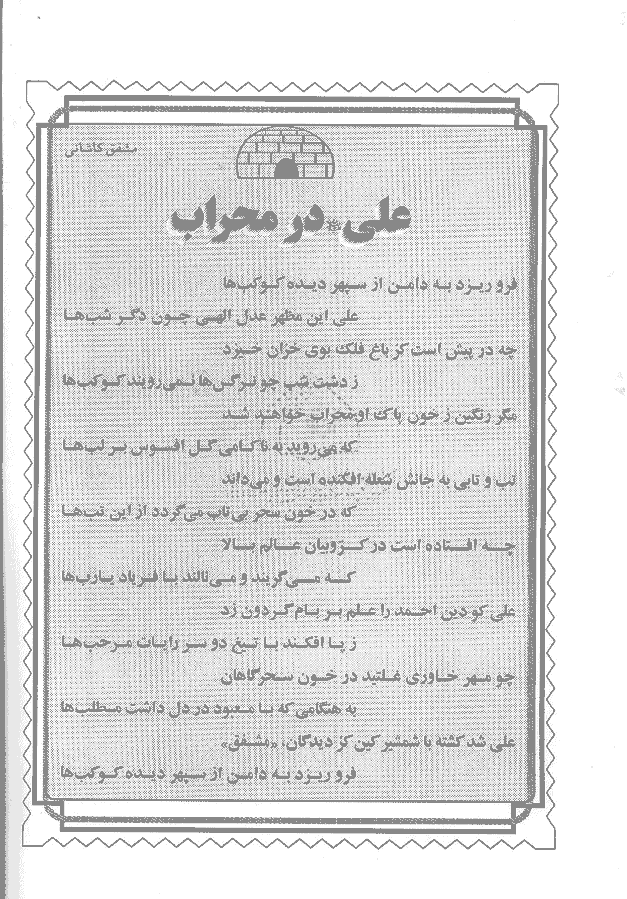 مشفق کاشانی
علی در محراب
فرو ریزد به دامن از سپهر دیده کوکب‌ها
علی این مظهر عدل الهی چون دگر شب‌ها
چه در پیش است کز باغ فلک بوی خزان خیزد
ز دشت شب چو نرگس‌ها نمی‌رویند کوکب‌ها
مگر رنگین ز خون پاک او محراب خواهند شد
که می‌روید به ناکامی گل افسوس بر لب‌ها
تب و تابی به جانش شعله افکنده است و می‌داند
که در خون سحر بی‌تاب می‌گردد از این تب‌ها
چه افتاده است در کروبیان عالم بالا
که می‌گریند و می‌نالند با فریاد یارب‌ها
علی کو دین احمد را علم بر بام گردون زد
ز پا افکند با تیغ دو سر رایات مرحب‌ها
چو مهر خاوری غلتید در خون سحرگاهان
به هنگامی که با معبود در دل داشت مطلب‌ها
علی شد کشته با شمشیر کین کز دیدگان، «مشفق»
فرو ریزد به دامن از سپهر دیده کوکب‌ها